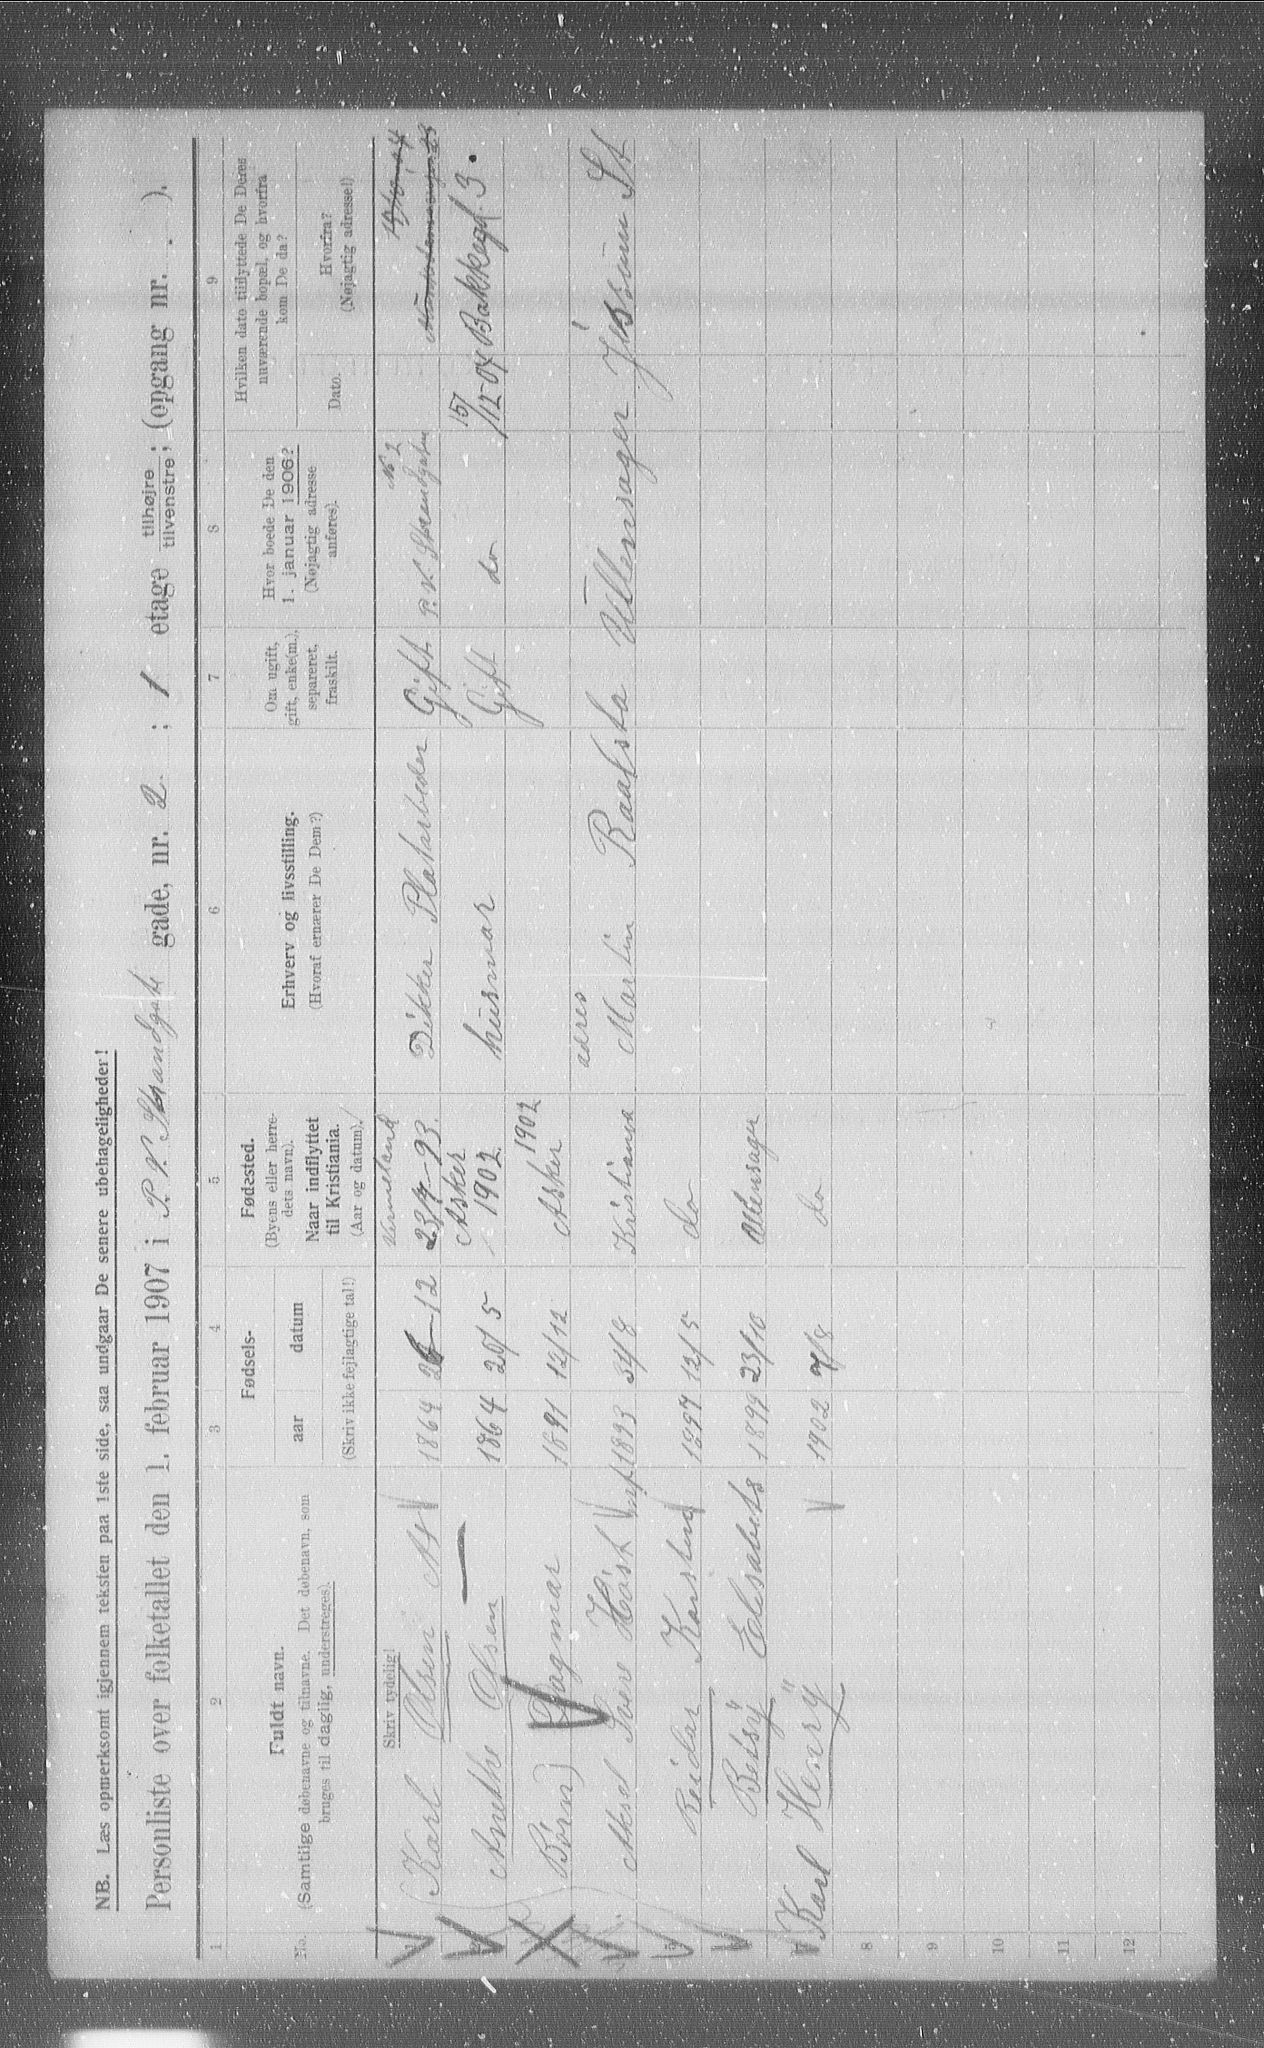 NB. Læs opmerksomt igjennem teksten paa 1ste side, saa undgaar De senere ubehageligheder!
Personliste over folketallet den 1. februar 1907 i P. V. Strandgate gade, nr. 2. ; 1 etage tilhøjre / tilvenstre ; (opgang nr. ).
1 2 3 4 5 6 7 8 9
No.
Fuldt navn.
(Samtlige døbenavne og tilnavne. Det døbenavn, som
bruges til daglig, understreges).
Skriv tydelig!
Fødsels-
aar datum
(Skriv ikke fejlagtige tal!)
Fødested.
(Byens eller herre-
dets navn).
Naar indflyttet
til Kristiania.
(Aar og datum).
Erhverv og livsstilling.
(Hvoraf ernærer De Dem?)
Om ugift,
gift, enke(m.),
separeret,
fraskilt.
Hvor boede De den
1. januar 1906?
(Nøjagtig adresse
anføres).
Hvilken dato tilflyttede De Deres
nuværende bopæl, og hvorfra
kom De da?
Dato.
Hvorfra?
(Nøjagtig adresse!)
Karl Olsen 1864 26-12 Vermeland 23/4-93. Dikker Platarbeder Gift P. V. Strandgaten No 2
Anethe Olsen 1864 20/5 Asker 1902 husmor Gift do 15/12-04 Bakkegd. 3.
Børn) Dagmar 1891 12/12 Asker 1902
adres
Aksel Høst 1893 Kristiania Martin Raalsta Ullensager Jessum St
Reidar Karsten 1897 12/5 do
Betsÿ Elisabets 1899 23/10 Ullensager
Karl Henrÿ 1902 7/8 do
8
9
10
11
12